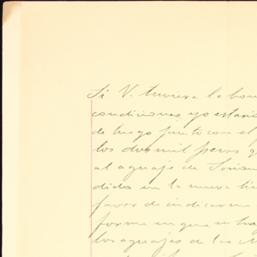 Si V. tuviera la bon
condiciones, yo estaria
de luego junto con el
los dos mil pesos q
al aguaje de Soria
dida en la nueva li
favor de indicarme
forma en que se ha
los aguajes de las